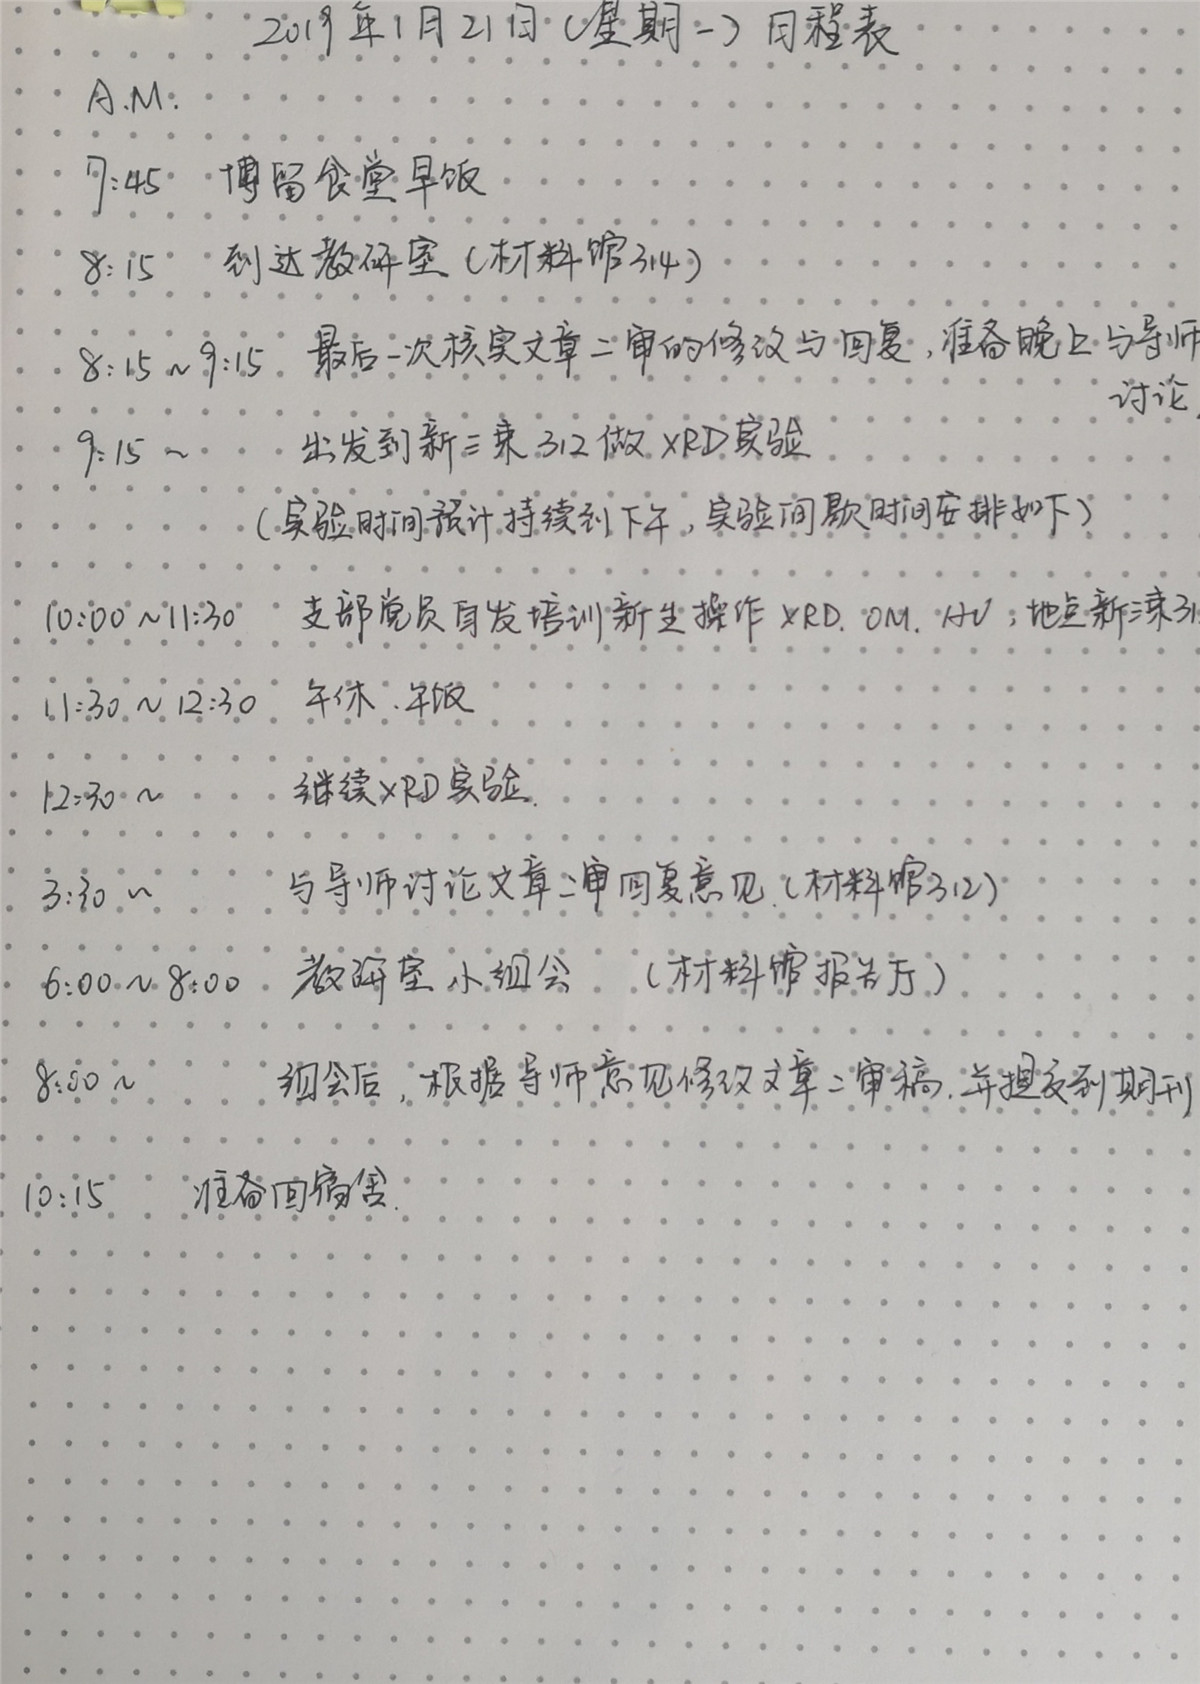 2019年1月21日(星期一)日程表
A.M.
7:45 博留食堂早饭
8:15 到达教研室(材料馆314)
8:15~9:15 最后一次核实文章二审的修改与回复,准备晚上与导师
讨论.
9:15~ 出发到新三束312做XRD实验
(实验时间预计持续到下午,实验间歇时间安排如下)
10:00~11:30 支部党员自发培训新生操作XRD.OM.HV;地点新三束31
11:30~12:30 午休.午饭
12:30~ 继续XRD实验.
3:30~ 与导师讨论文章二审回复意见.(材料馆312)
6:00~8:00 教研室小组会 (材料馆报告厅)
8:00~ 组会后,根据导师意见修改文章二审稿.并提交到期刊
10:15 准备回宿舍.